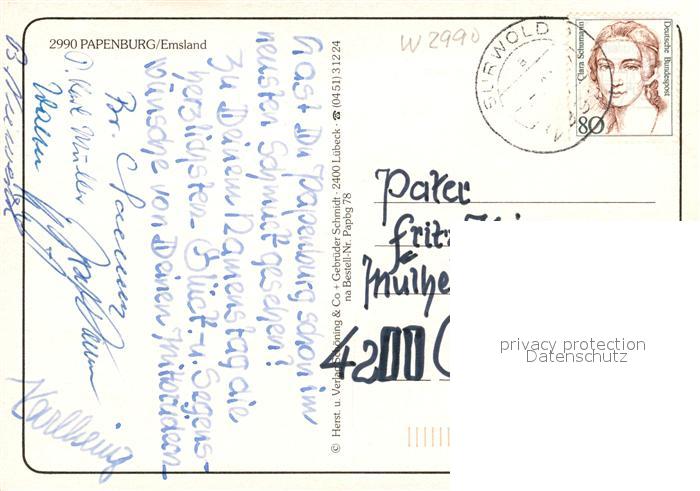 2990 PAPENBURG/Emsland
W 2990
SURWOLD
Clara Schumann
Deutsche Bundespost
80
hast Du Papenburg schon im
neusten Schmuck gesehen?
Zu Deinem Namenstag die
herzlichsten Glück- u. Segens-
wünsche von Deinen Mitbrüdern
Br.
P. Karl Müller
Karlheinz
© Herst. u. Verlag Schöning & Co + Gebrüder Schmidt · 2400 Lübeck · ☎ (04 51) 3 12 24
na Bestell-Nr. Papbg 78
Pater
Fritz
Mülhe
4200
privacy protection
Datenschutz